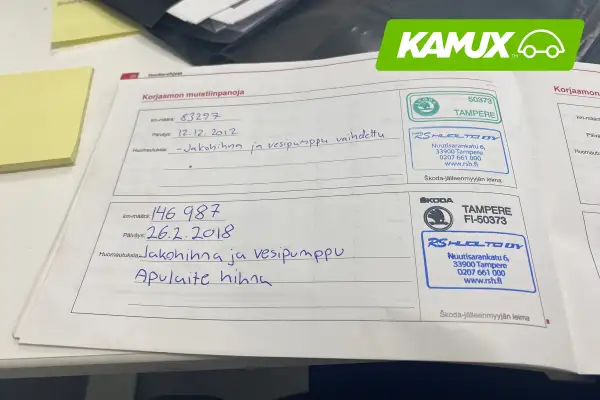 KAMUX
Huolto-ohjeet
Korjaamon muistiinpanoja
km-määrä: 83297
Päiväys: 12.12.2012
Huomautuksia: -Jakohihna ja vesipumppu vaihdettu
50373
TAMPERE
RS HUOLTO OY
Nuutisarankatu 6,
33900 Tampere
0207 661 000
www.rsh.fi
Škoda-jälleenmyyjän leima
km-määrä: 146 987
Päiväys: 26.2.2018
Huomautuksia: Jakohihna ja vesipumppu
Apulaite hihna
ŠKODA
TAMPERE
FI-50373
RS HUOLTO OY
Nuutisarankatu 6,
33900 Tampere
0207 661 000
www.rsh.fi
Škoda-jälleenmyyjän leima
Korjaamon
km-määrä
Päiväys:
Huomau